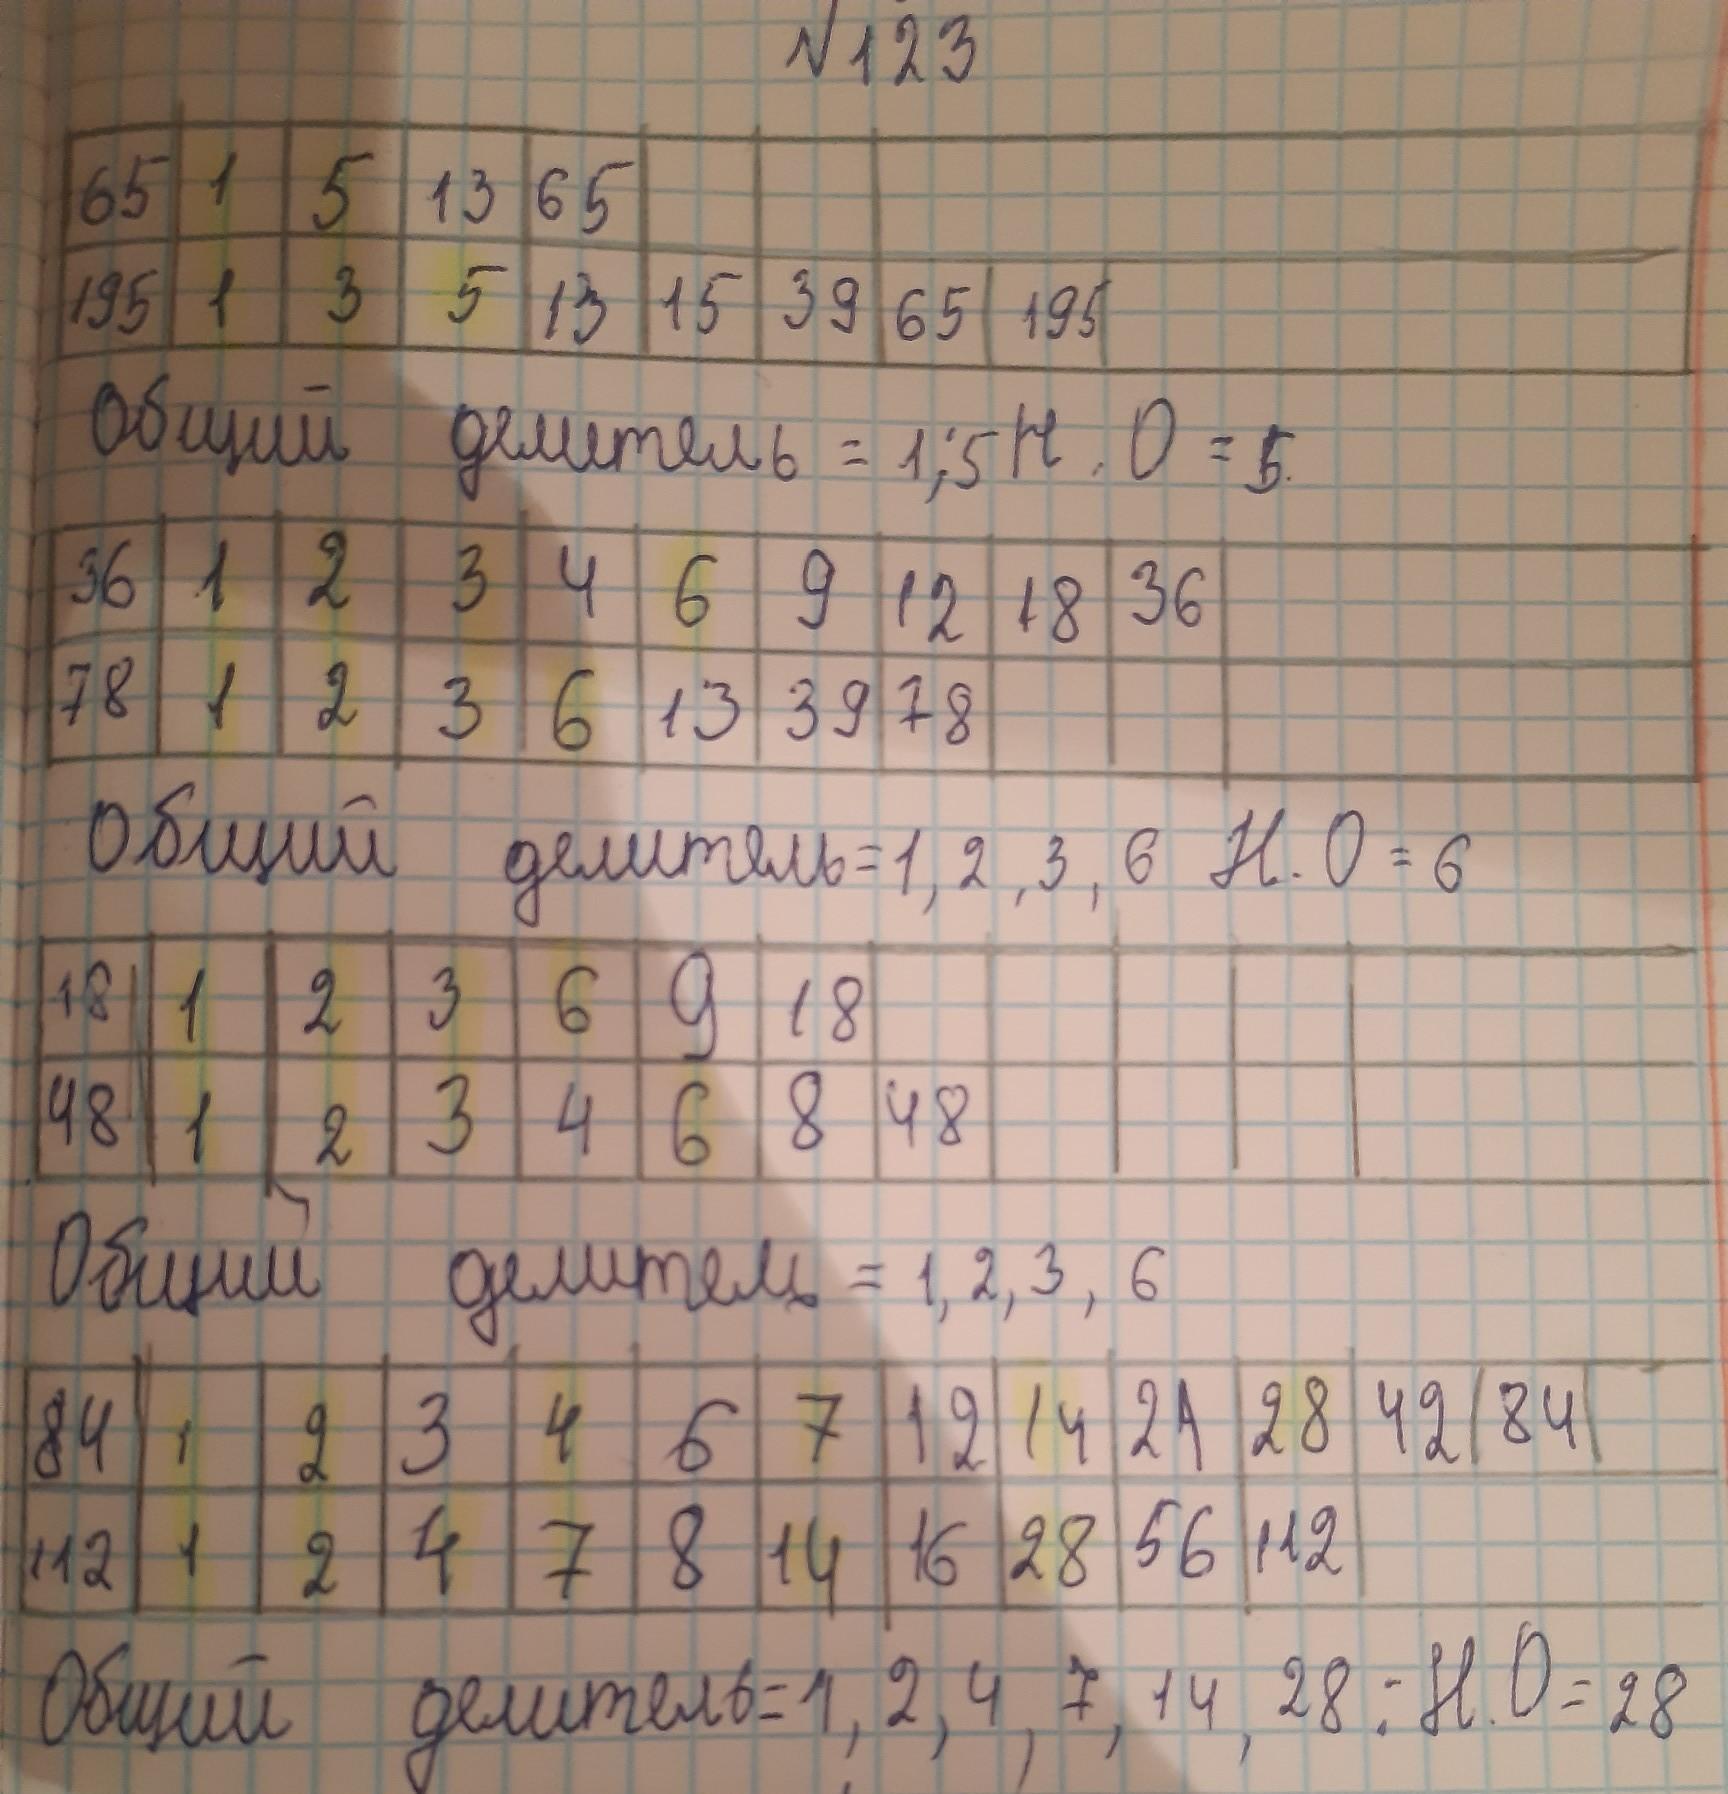 №123
65 1 5 13 65
195 1 3 5 13 15 39 65 195
Общий делитель = 1;5 Н. О = 5.
36 1 2 3 4 6 9 12 18 36
78 1 2 3 6 13 39 78
Общий делитель = 1, 2, 3, 6 Н. О = 6
18 1 2 3 6 9 18
48 1 2 3 4 6 8 48
Общий делитель = 1, 2, 3, 6
84 1 2 3 4 6 7 12 14 21 28 42 84
112 1 2 4 7 8 14 16 28 56 112
Общий делитель = 1, 2, 4, 7, 14, 28 ; Н. О = 28